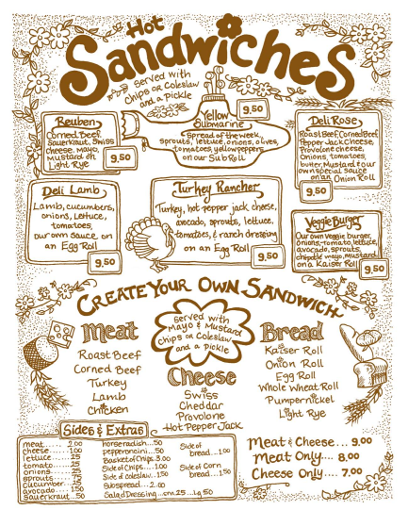 Hot
Sandwiches
Served with
Chips or Coleslaw
and a Pickle
Reuben
Corned Beef,
Sauerkraut, Swiss
Cheese, Mayo,
Mustard on
Light Rye
9,50
Yellow
Submarine
9,50
Spread of the week,
sprouts, lettuce, onions, olives,
tomatoes, yellow peppers,
on our Sub Roll
Deli Rose
Roast Beef, Corned Beef,
Pepper Jack Cheese,
Provolone Cheese,
Onions, tomatoes,
butter, Mustard & our
own special sauce
on an Onion Roll
9,50
Deli Lamb
Lamb, cucumbers,
onions, lettuce,
tomatoes,
our own sauce, on
an Egg Roll
9,50
Turkey Rancher
Turkey, hot pepper jack cheese,
avocado, sprouts, lettuce,
tomatoes, & ranch dressing
on an Egg Roll
9,50
Veggie Burger
Our own veggie burger,
onions, tomato, lettuce,
avocado, sprouts,
chipotle mayo, mustard
on a Kaiser Roll
9,50
Create Your Own Sandwich
Served with
Mayo & Mustard
Chips or Coleslaw
and a Pickle
Meat
Roast Beef
Corned Beef
Turkey
Lamb
Chicken
Cheese
Swiss
Cheddar
Provolone
Hot Pepper Jack
Bread
Kaiser Roll
Onion Roll
Egg Roll
Whole Wheat Roll
Pumpernickel
Light Rye
Sides & Extras
meat 2.00
cheese 1.00
lettuce .25
tomato .25
onions .25
sprouts .25
cucumber .25
avocado 1.50
sauerkraut .50
horseradish .50
pepperoncini .50
Basket of Chips 3.00
Side of Chips 1.00
Side of coleslaw 1.50
Sub spread 2.00
Salad Dressing
Side of
bread 1.00
Side of Corn
bread 1.50
Meat & Cheese... 9,00
Meat Only.... 8,00
Cheese Only.... 7,00